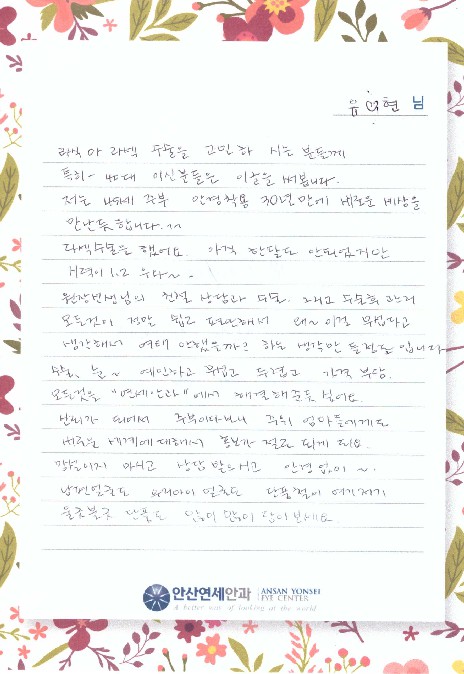 유 현 님
라식 아 라섹 수술을 고민 하 시는 분들께
특히~ 40대 이신분들은 이글을 써봅니다.
저는 45세 주부 안경착용 30년 만에 새로운 세상을
만난듯 합니다.~
라섹수술을 했어요. 아직 한달도 안되었지만
시력이 1.2 우와~.
원장선생님의 친절 상담과 수술. 그리고 수술후 관리
모든것이 정말 쉽고 편안해서 왜~ 이걸 무섭다고
생각해서 여태 안했을까? 하는 생각만 들 정도 입니다
수술, 눈~ 예민하고 무섭고 두렵고 가격 부담.
모든것을 "연세안과"에서 해결해 준듯 싶어요.
난리가 되어서 주부이다보니 주위 엄마들에게도
새로운 세계에 대해서 홍보가 절로 되게 되요.
망설이지 마시고 상담 받으시고 안경 없이 ~.
남편얼굴도 아이 얼굴도 단풍철이 여기저기
울긋불긋 단풍도 많이 많이 담아보세요.
안산연세안과 ANSAN YONSEI
EYE CENTER
A better way of looking at the world